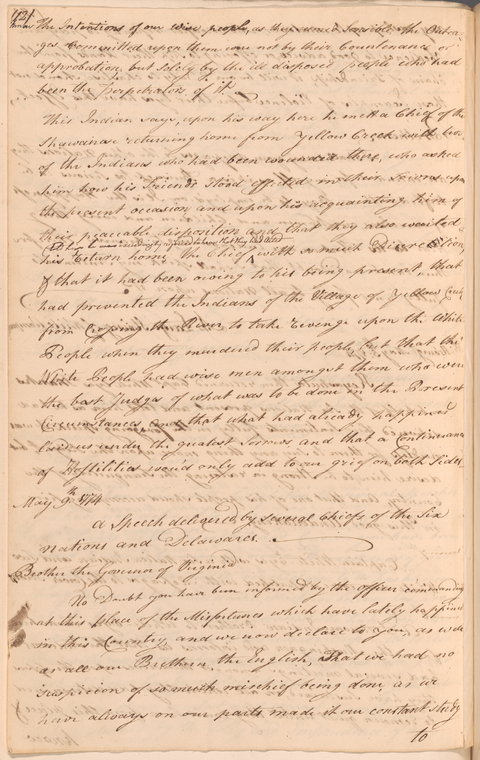 the Intentions of our wise people, as they were sensible the Outra-
ges Committed upon them were not by their Countenance or
approbation, but solely by the ill disposed people who had
been the perpetrators of it.
This Indian says, upon his way here he mett a Chief of the
Shawanase returning home from Yellow Creek with two
of the Indians who had been wounded there, who asked
him how his Friends stood affected in their Minds upon
the present occasion and upon his acquainting him of
their peaceable disposition and that they also waited
his Return home, the Chief with so much Discretion,
& that it had been owing to his being present that
had prevented the Indians of the Village of Yellow Creek
from Crossing the River to take revenge upon the White
People when they murdered their people, but that the
White People had wise men amongst them who were
the best Judges of what was to be done in the Present
Circumstances, and that what had already happened
laid us under the greatest Sorrows and that a Continuance
of Hostilities would only add to our grief on both Sides
May 9th. 1774
a Speech delivered by several Chiefs of the Six
Nations and Delawares.
Brother the Governor of Virginia
No Doubt you have been informed by the officer commanding
at this place of the Misfortunes which have lately happened
in this Country, and we now declare to you, as well
as all our Brethren the English, that we had no
suspicion of so much mischief being done, as we
have always on our parts made it our constant study
to